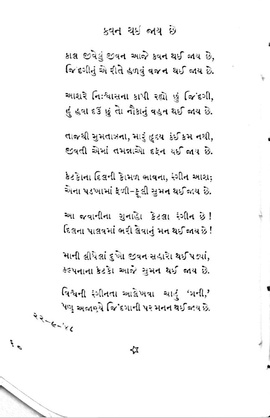 કવન થઈ જાય છે
કાલ જીવેલું જીવન આજે કવન થઈ જાય છે,
જિંદગીનું એ રીતે હળવું વજન થઈ જાય છે.
આશરે નિઃશ્વાસના કાપી રહ્યો છું જિંદગી,
હું હવા દઉં છું તો નૌકાનું વહન થઈ જાય છે.
તાજથી મુમતાઝના, મારું હૃદય કંઈ કમ નથી,
જીવતી એમાં તમન્નાઓ દફન થઈ જાય છે.
કંટકોના દિલની કોમળ ભાવના, રંગીન આશ;
એના પડખામાં ફળી-ફૂલી સુમન થઈ જાય છે.
આ જવાનીના ગુનાહો કેટલા રંગીન છે!
દિલના પાલવમાં ભરી લેવાનું મન થઈ જાય છે!
માની લીધેલાં દુઃખો જીવન સહારો થઈ પડ્યાં,
કલ્પનાના કંટકો આજે સુમન થઈ જાય છે.
વિશ્વની રંગીનતા આલેખવા ચાહું 'ગની',
પણ અજાણ્યે જિંદગાની પર મનન થઈ જાય છે.
૨૨-૯-'૪૮
૬૦